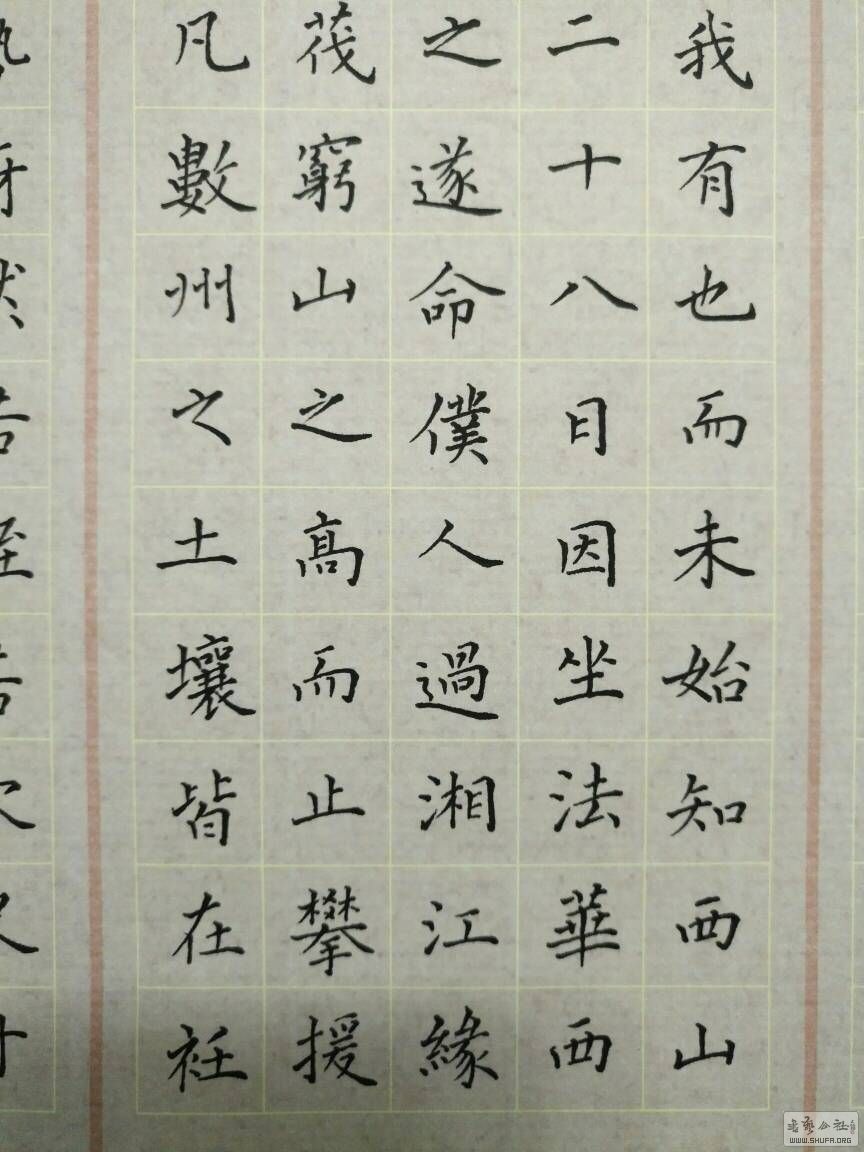 我有也而未始知西山
二十八日因坐法華西
之遂命僕人過湘江緣
茷窮山之髙而止攀援
凡數州之土壤皆在衽
WWW.SHUFA.ORG